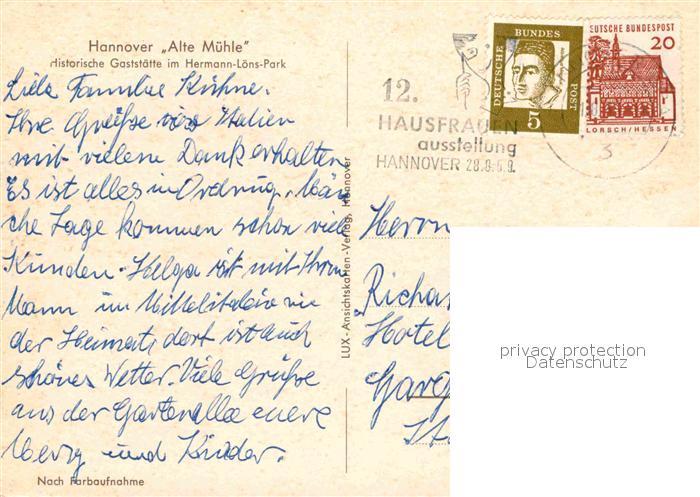 Hannover „Alte Mühle"
Historische Gaststätte im Hermann-Löns-Park
Liebe Familie Kühne.
Ihre Grüße aus Italien
mit vielem Dank erhalten
Es ist alles in Ordnung. Man
che Tage kommen schon viele
Kunden. Helga ist mit Ihrem
Mann im Mittelitalien wie
der Heimat, dort ist auch
schönes Wetter. Viele Grüße
aus der Gartenallee euere
und Kinder.
Nach Farbaufnahme
LUX-Ansichtskarten-Verlag, Hannover
12.
HAUSFRAUEN
ausstellung
HANNOVER 28.8.-6.9.
DEUTSCHE BUNDES POST
5
DEUTSCHE BUNDESPOST
20
LORSCH/HESSEN
3
Herrn
Richa
Hotel
Garg
privacy protection
Datenschutz